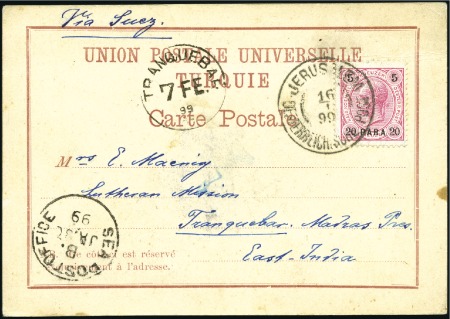 Via Suez.
UNION POSTALE UNIVERSELLE
TURQUIE
Carte Postale
TRANQUEBAR
7 FE.
99
JERUSALEM
16
99
5 5
20 PARA 20
Mrs E. Maenig
Lutheran Mission
Tranquebar. Madras Pres.
East-India
SEA POST OFFICE
B.
99
côté est réservé
à l'adresse.